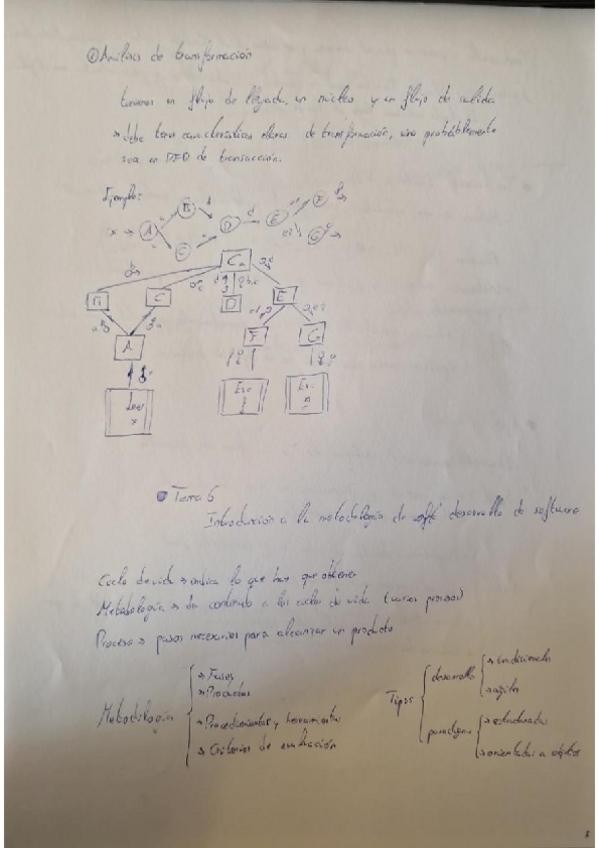 Análisis de transformación
tenemos un flujo de llegada, un núcleo y un flujo de salida
→ debe tener características claras de transformación, sino probablemente
sea un DFD de transacción.
Ejemplo:
x → A B C D E F G
Cn
B C D E
A F G
Leer x
Esc
Esc
Tema 6
Introducción a la metodología de desarrollo de software
Ciclo de vida → indica lo que hay que obtener
Metodología → da contenido a los ciclos de vida (varios procesos)
Proceso → pasos necesarios para alcanzar un producto
Metodología
→ Fases
→ Productos
→ Procedimientos y herramientas
→ Criterios de evaluación
Tipos
desarrollo
→ tradicionales
→ ágiles
paradigma
→ estructurada
→ orientada a objetos